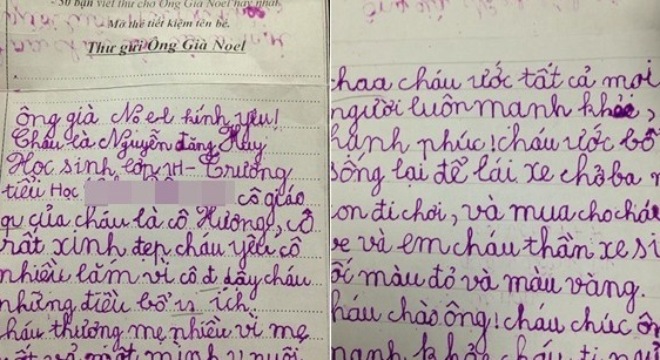 - 30 bạn viết thư cho Ông Già Noel hay nhất
Mở thẻ tiết kiệm tên bé.
Thư gửi Ông Già Noel
ông già Noel kính yêu!
Cháu là Nguyễn đăng Huy
Học sinh lớp 1H - Trường
tiểu Học cô giáo
của cháu là cô Hương, cô
rất xinh đẹp cháu yêu cô
nhiều lăm vì cô đ dậy cháu
những điều bổ ích
cháu thương mẹ nhiều vì mẹ
một mình nuôi
cháu ước tất cả mọi
người luôn mạnh khỏe,
hạnh phúc! cháu ước bố
sống lại để lái xe chở ba
con đi chơi, và mua cho cháu
và em cháu thần xe si
màu đỏ và màu vàng.
cháu chào ông! cháu chúc ôn
mạnh khỏe